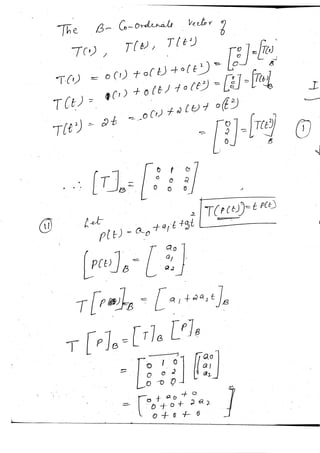 The B- Co-ordinate Vector of
T(1), T(t), T(t²)
T(1) = 0(1) + 0(t) + 0(t²) = [0 0 0] = [T(1)]B
T(t) = 1(1) + 0(t) + 0(t²) = [1 0 0] = [T(t)]B
T(t²) = 2t = 0(1) + 2(t) + 0(t²)
= [0 2 0] = [T(t²)]B
I
∴ [T]B = [0 1 0
0 0 2
0 0 0]
(ii) Let
p(t) = a₀ + a₁t + a₂t² T(P(t)) = t P(t)
[P(t)]B = [a₀ a₁ a₂]
T[P(t)]B = [a₁ + 2a₂t]B
T[P]B = [T]B [P]B
= [0 1 0
0 0 2
0 0 0] [a₀ a₁ a₂]
= [0 + a₀ + 0
0 + 0 + 2a₂
0 + 0 + 0]